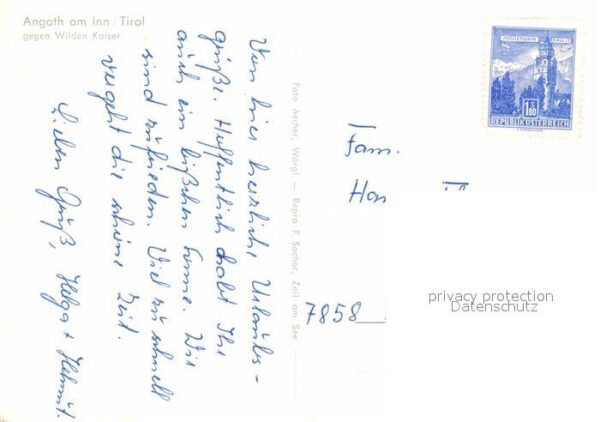 Angath am Inn / Tirol
gegen Wilden Kaiser
Von hier herzliche Urlaubs-
grüße. Hoffentlich habt Ihr
auch ein bißchen Sonne. Wir
sind zufrieden. Viel zu schnell
vergeht die schöne Zeit.
Lieben Gruß, Helga + Helmut.
Foto Ascher, Wörgl — Repro F. Sochor, Zell am See
1.80
REPUBLIK ÖSTERREICH
Fam.
7858
privacy protection
Datenschutz